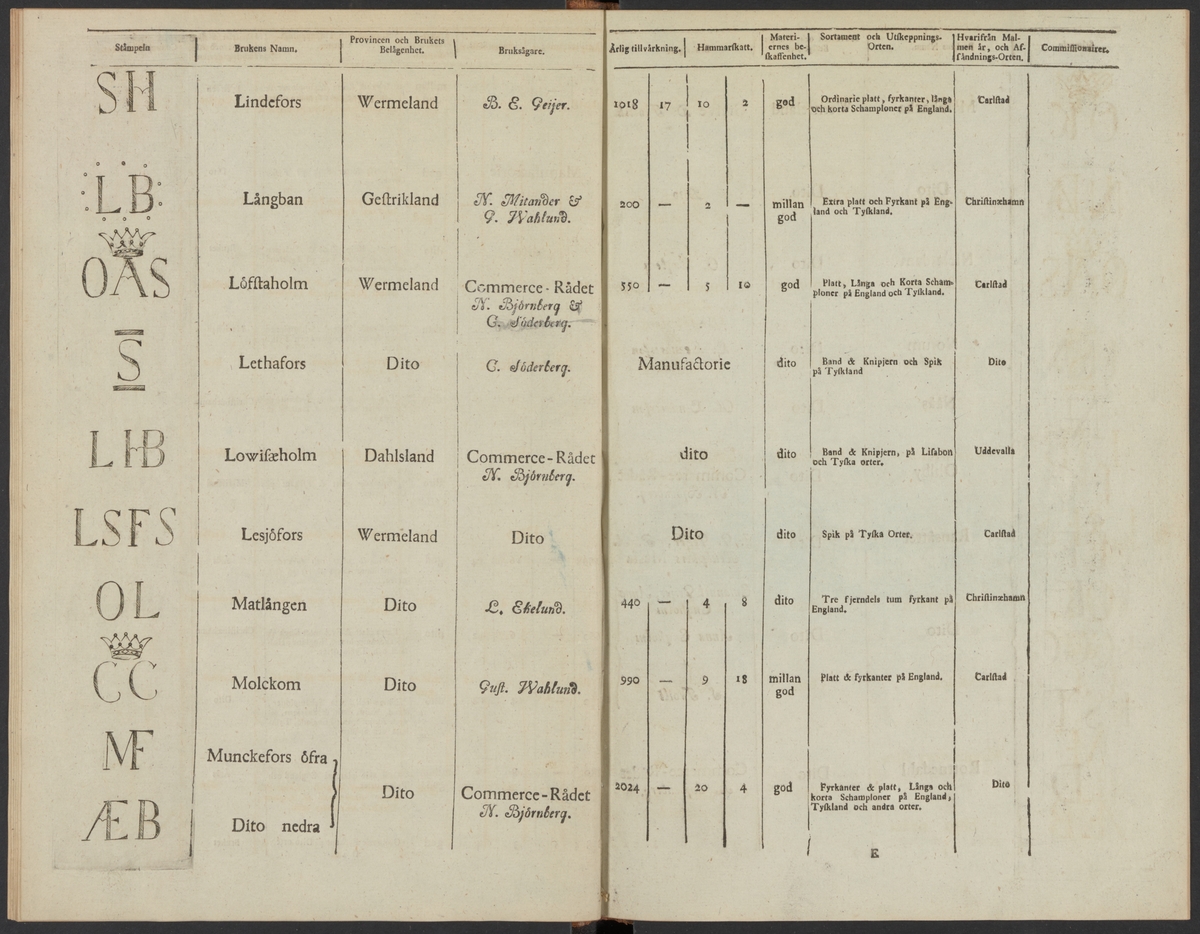 Stämpeln | Brukens Namn. | Provincen och Brukets Belågenhet. | Bruksågare. | Årlig tillvårkning. | Hammarſkatt. | Materiernes beſkaffenhet. | Sortament och Utſkeppnings-Orten. | Hvarifrån Malmen år, och Affåndnings-Orten. | Commiſſionairer.
SH | Lindefors | Wermeland | B. E. Geijer. | 1018 | 17 | 10 | 2 | god | Ordinarie platt, fyrkanter, långa och korta Schamploner på England. | Carlſtad
LB | Långban | Geſtrikland | N. Mitander & G. Wahlund. | 200 | — | 2 | — | millan god | Extra platt och Fyrkant på England och Tyſkland. | Chriſtinæhamn
OAS | Lôfſtaholm | Wermeland | Commerce-Rådet N. Bjôrnberg & C. Sôderberg. | 550 | — | 5 | 10 | god | Platt, Långa och Korta Schamploner på England och Tyſkland. | Carlſtad
S | Lethafors | Dito | C. Sôderberg. | Manufactorie | dito | Band & Knipjern och Spik på Tyſkland | Dito
LHB | Lowiſæholm | Dahlsland | Commerce-Rådet N. Bjôrnberg. | dito | dito | Band & Knipjern, på Liſabon och Tyſka orter. | Uddevalla
LSFS | Lesjôfors | Wermeland | Dito | Dito | dito | Spik på Tyſka Orter. | Carlſtad
OL | Matlången | Dito | L. Ekelund. | 440 | — | 4 | 8 | dito | Tre fjerndels tum fyrkant på England. | Chriſtinæhamn
CC | Molckom | Dito | Guſt. Wahlund. | 990 | — | 9 | 18 | millan god | Platt & fyrkanter på England. | Carlſtad
MF | Munckefors ôfra
ÆB | Dito nedra | Dito | Commerce-Rådet N. Bjôrnberg. | 2024 | — | 20 | 4 | god | Fyrkanter & platt, Långa och korta Schamploner på England, Tyſkland och andra orter. | Dito
E